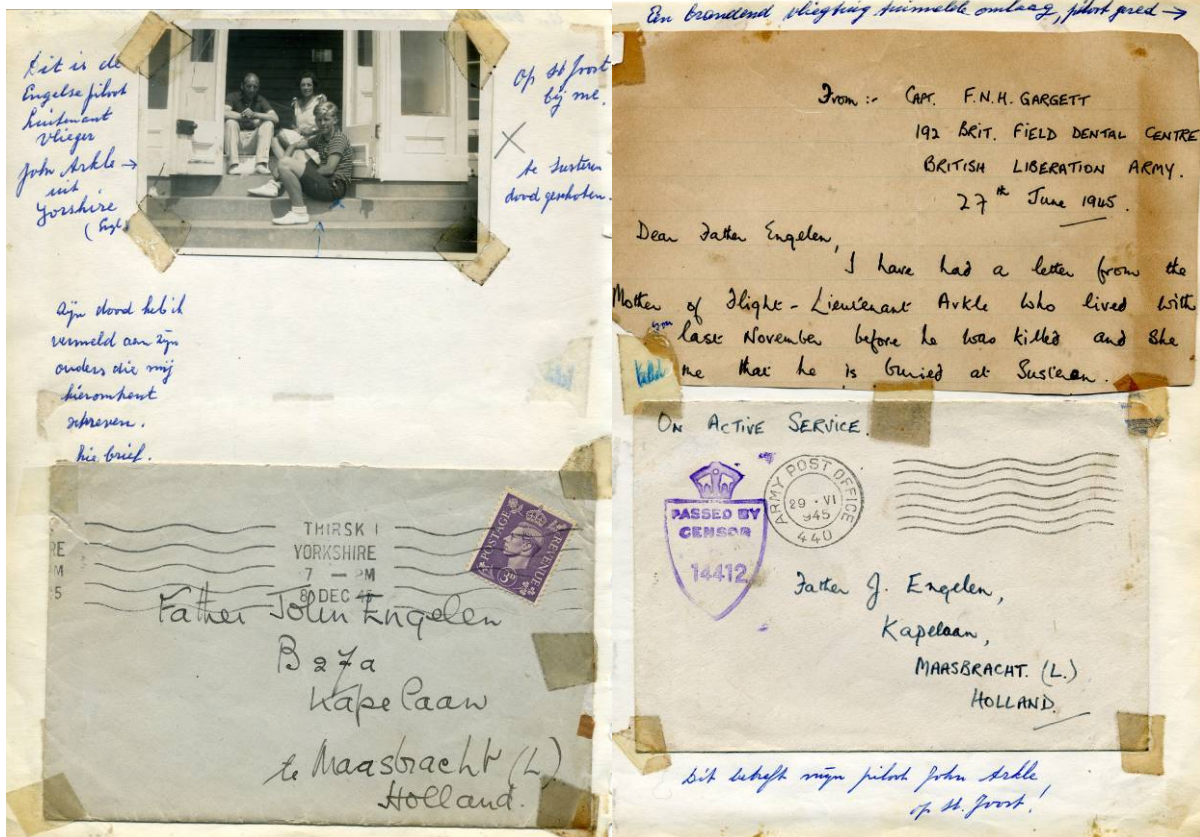 Dit is de
Engelse piloot
luitenant
vlieger
John Arkle →
uit
Yorshire
(Engl.
Op St Joost
bij me.
te Susteren
dood geschoten.
Zijn dood heb ik
vermeld aan zijn
ouders die mij
hieromtrent
schreven.
Zie brief.
THIRSK
YORKSHIRE
7 — PM
8 DEC 45
POSTAGE
REVENUE
3D
Father John Engelen
B 27a
Kapelaan
te Maasbracht (L)
Holland.
Een brandend vliegtuig tuimelde omlaag, piloot gered →
From :- CAPT. F.N.H. GARGETT
192 BRIT. FIELD DENTAL CENTRE
BRITISH LIBERATION ARMY.
27th June 1945.
Dear Father Engelen,
I have had a letter from the
Mother of Flight-Lieutenant Arkle who lived with
you last November before he was killed and she
me that he is buried at Susteren.
ON ACTIVE SERVICE.
PASSED BY
CENSOR
14412
ARMY POST OFFICE
29 · VI
945
440
Father J. Engelen,
Kapelaan,
MAASBRACHT. (L.)
HOLLAND.
Dit betreft mijn piloot John Arkle
op St. Joost!